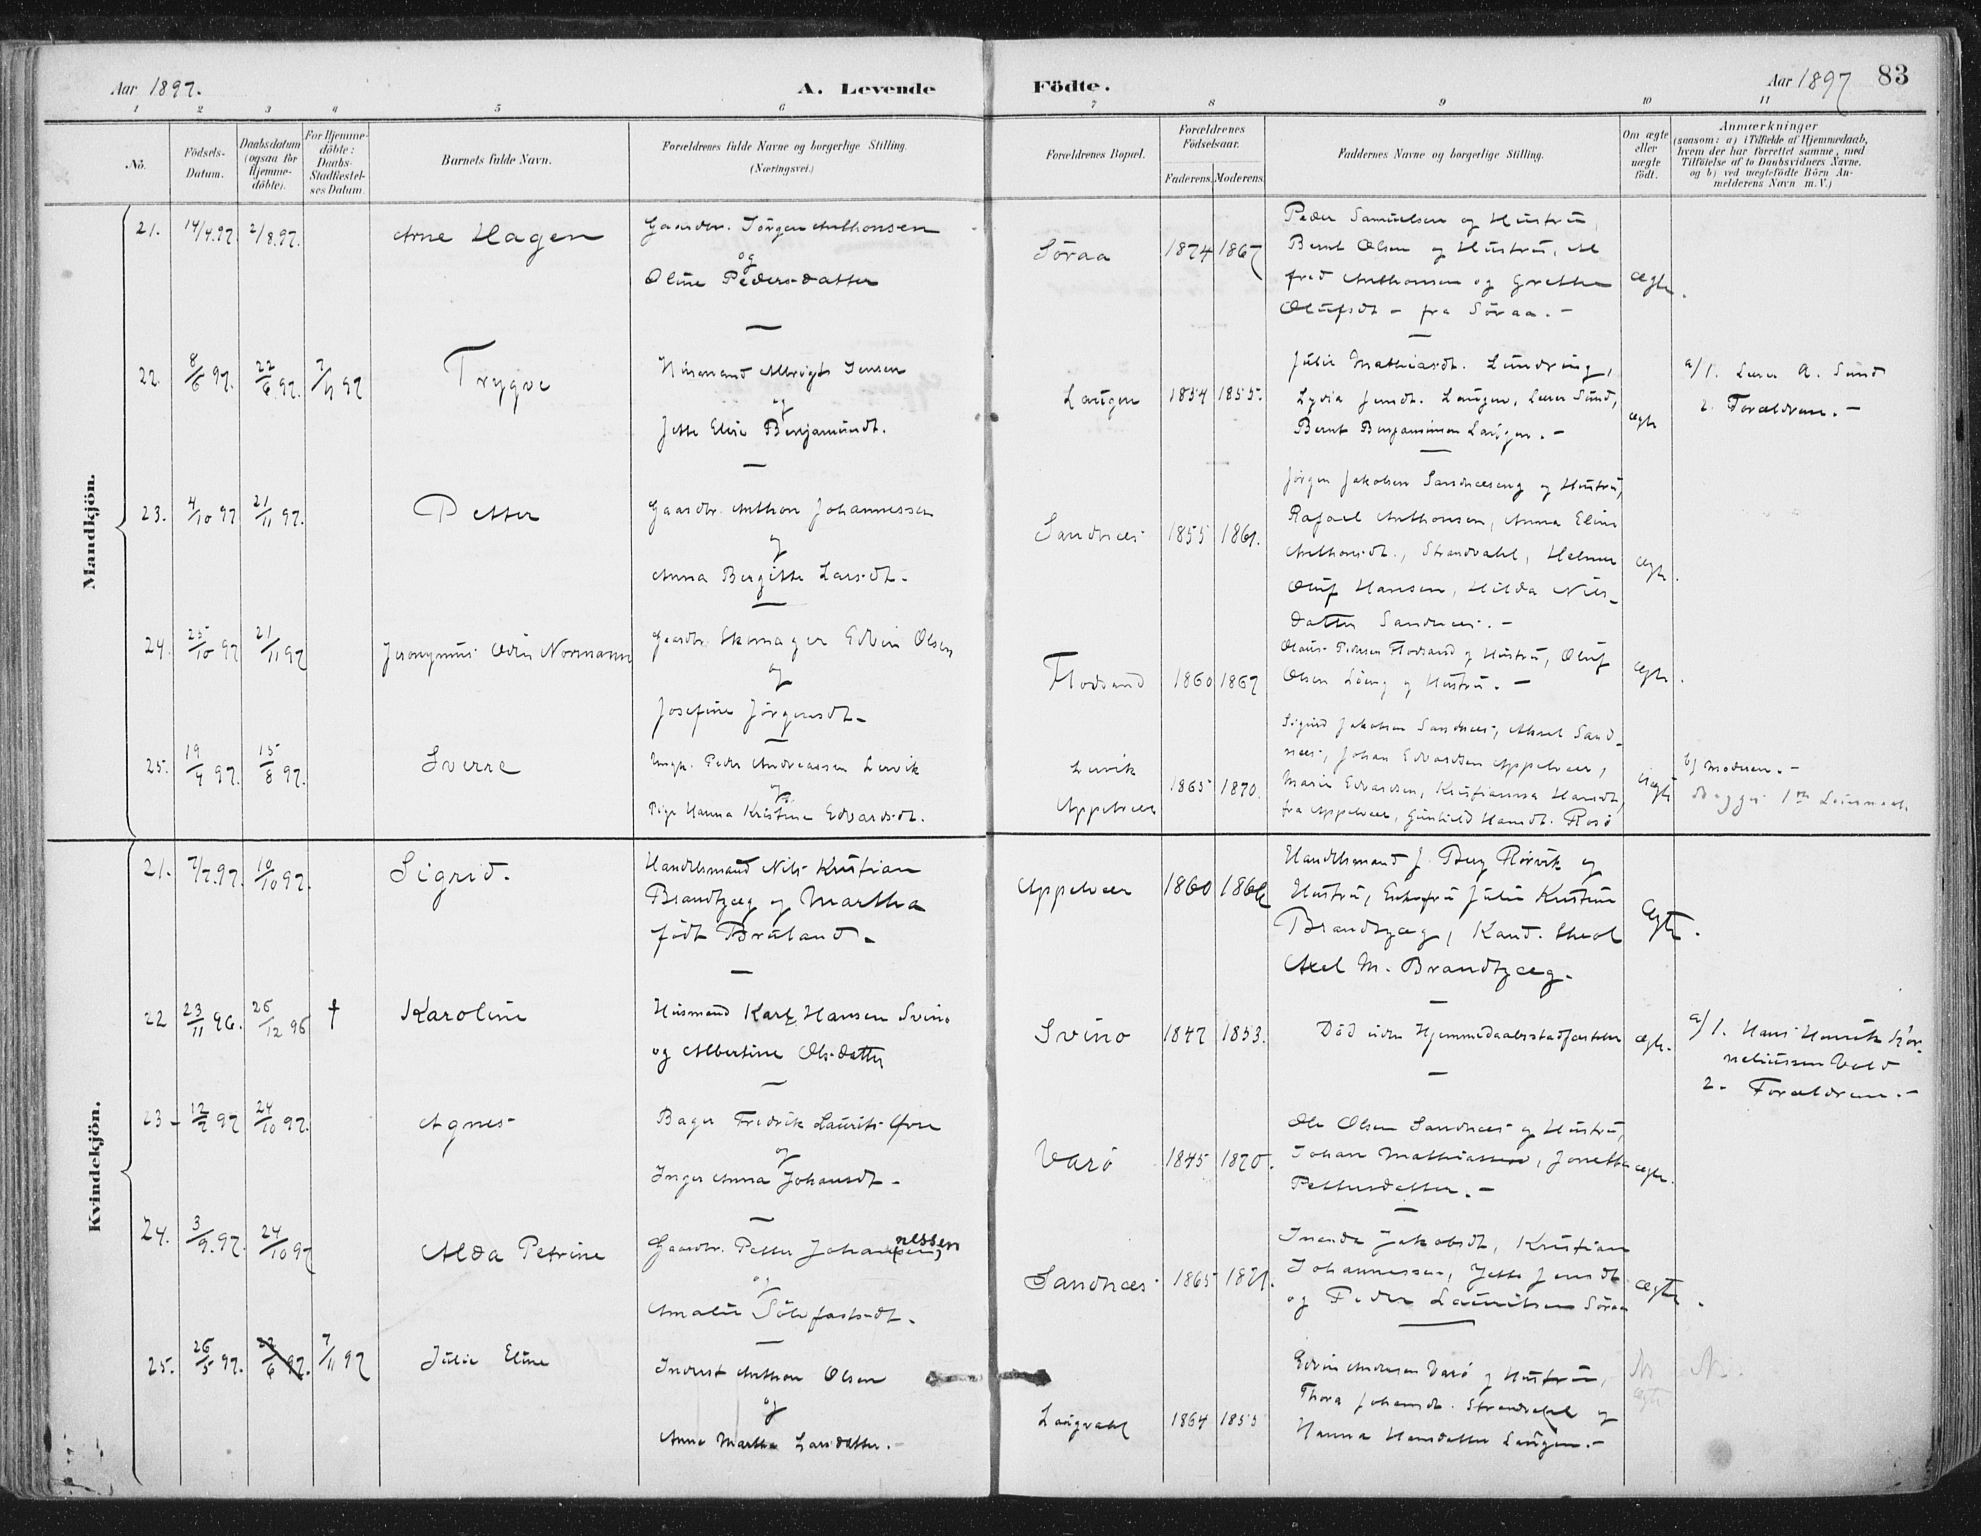 Aar 1897.
A. Levende
Födte.
Aar 1897
83
1 2 3 4 5 6 7 8 9 10 11
No.
Födsels-Datum.
Daabsdatum (ogsaa for Hjemme-döbte).
For Hjemme-döbte: Daabs-Stadfæstelses Datum.
Barnets fulde Navn.
Forældrenes fulde Navne og borgerlige Stilling. (Næringsvei.)
Forældrenes Bopæl.
Forældrenes Födselsaar.
Faderens. Moderens.
Faddernes Navne og borgerlige Stilling.
Om ægte eller uægte födt.
Anmærkninger
(saasom: a) i Tilfælde af Hjemmedaab, hvem der har forrettet samme, med Tilföielse af to Daabsvidners Navne. og b) ved uægtefödte Börn Anmelderens Navn m. V.)
Mandkjön.
21. 14/4.97. 2/8.97. Arne Hagen
Gaardbr. Jörgen Anthonsen
og
Oline Pedersdatter
Söraa 1874 1867
Peder Samuelsen og Hustru,
Bernt Olsen og Hustru, Al
fred Anthonsen og Grethe
Olufsdt - fra Söraa. -
ægte.
22. 8/6 97. 22/6 97. 7/11 97 Trygve
Husmand Albrigt Jensen
og
Jette Elise Benjaminsdt.
Laugen 1854 1855.
Julie Mathiasdt. Lundring,
Lydia Jensdt. Laugen, Lærer Sund,
Bernt Benjaminsen Laugen. -
ægte
a/ 1. Lærer A. Sund
2. Forældrene. -
23. 4/10 97 21/11 97. Petter
Gaardbr. Anthon Johannessen
og
Anna Bergitte Larsdt.
Sandnæs 1855 1861.
Jörgen Jakobsen Sandnæseng og Hustru,
Rafael Anthonsen, Anna Eline
Anthonsdt., Strandvahl, Helmer
Oluf Hansen, Hilda Nils-
datter Sandnæs. -
ægte.
24. 25/10 97 21/11 97 Jeronymus Odin Normann
Gaardbr. Skomager Edvin Olsen
og
Josefine Jörgensdt.
Flosand 1860 1867
Olaus Pedersen Flosand og Hustru, Oluf
Olsen Löeng og Hustru. -
ægte.
25. 19/4 97. 15/8 97. Sverre
Ungk. Peder Andreassen Lervik
og
Pige Hanna Kristine Edvardsdt.
Lervik
Appelvær 1865 1870.
Sigurd Jakobsen Sandnæs, Aksel Sand-
næs, Johan Edvardsen Appelvær,
Marie Edvardsen, Kristianna Hansdt,
fra Appelvær, Gunhild Hansdt. Rosö
uægte
b) Moderen. -
Begges 1ste Leiermaal
Kvindekjön.
21. 7/7.97. 10/10 97. Sigrid.
Handelsmand Nils Kristian
Brandtzæg og Martha
födt Bruland.
Appelvær 1860
Handelsmand J. Berg Rörvik og
Hustru, Enkefru Julie Kristine
Brandtzæg, Kand. theol
Axel M. Brandtzæg.
Ægte.
22 23/11 96. 26/12 96 † Karoline
Husmand Karl Hansen Svino
og Albertine Olsdatter
Svino 1847 1853.
Död uden Hjemmedaabsstadfæstelse
ægte.
a/ 1. Hans Henrik Kor-
neliussen Vold
2. Forældrene. -
23 - 12/7 97 24/10 97. Agnes
Bager Fredrik Laurits Övre
og
Inger Anna Johansdt -
Varö 1845 1870.
Ole Olsen Sandnæs og Hustru,
Johan Mathiassen, Jonetta
Pettersdatter. -
ægte.
24. 3/9.97. 24/10 97 Alda Petrine
Gaardbr. Petter Johannessen
og
Amalie Sölefastsdt.
Sandnæs 1865 1871.
Inanda Jakobsdt, Kristian
Johannessen, Jette Jensdt
og Peder Lauritsen Söraa
ægte.
25. 26/5 97. 22/6 97. 7/11 97 Julie Eline
Inderst Anthon Olsen
og
Anne Martha Larsdatter. -
Laugvahl 1864 1855
Edvin Andersen Varö og Hustru,
Thora Johansdt. Strandvahl og
Hanna Hansdatter Laugen. -
ægte